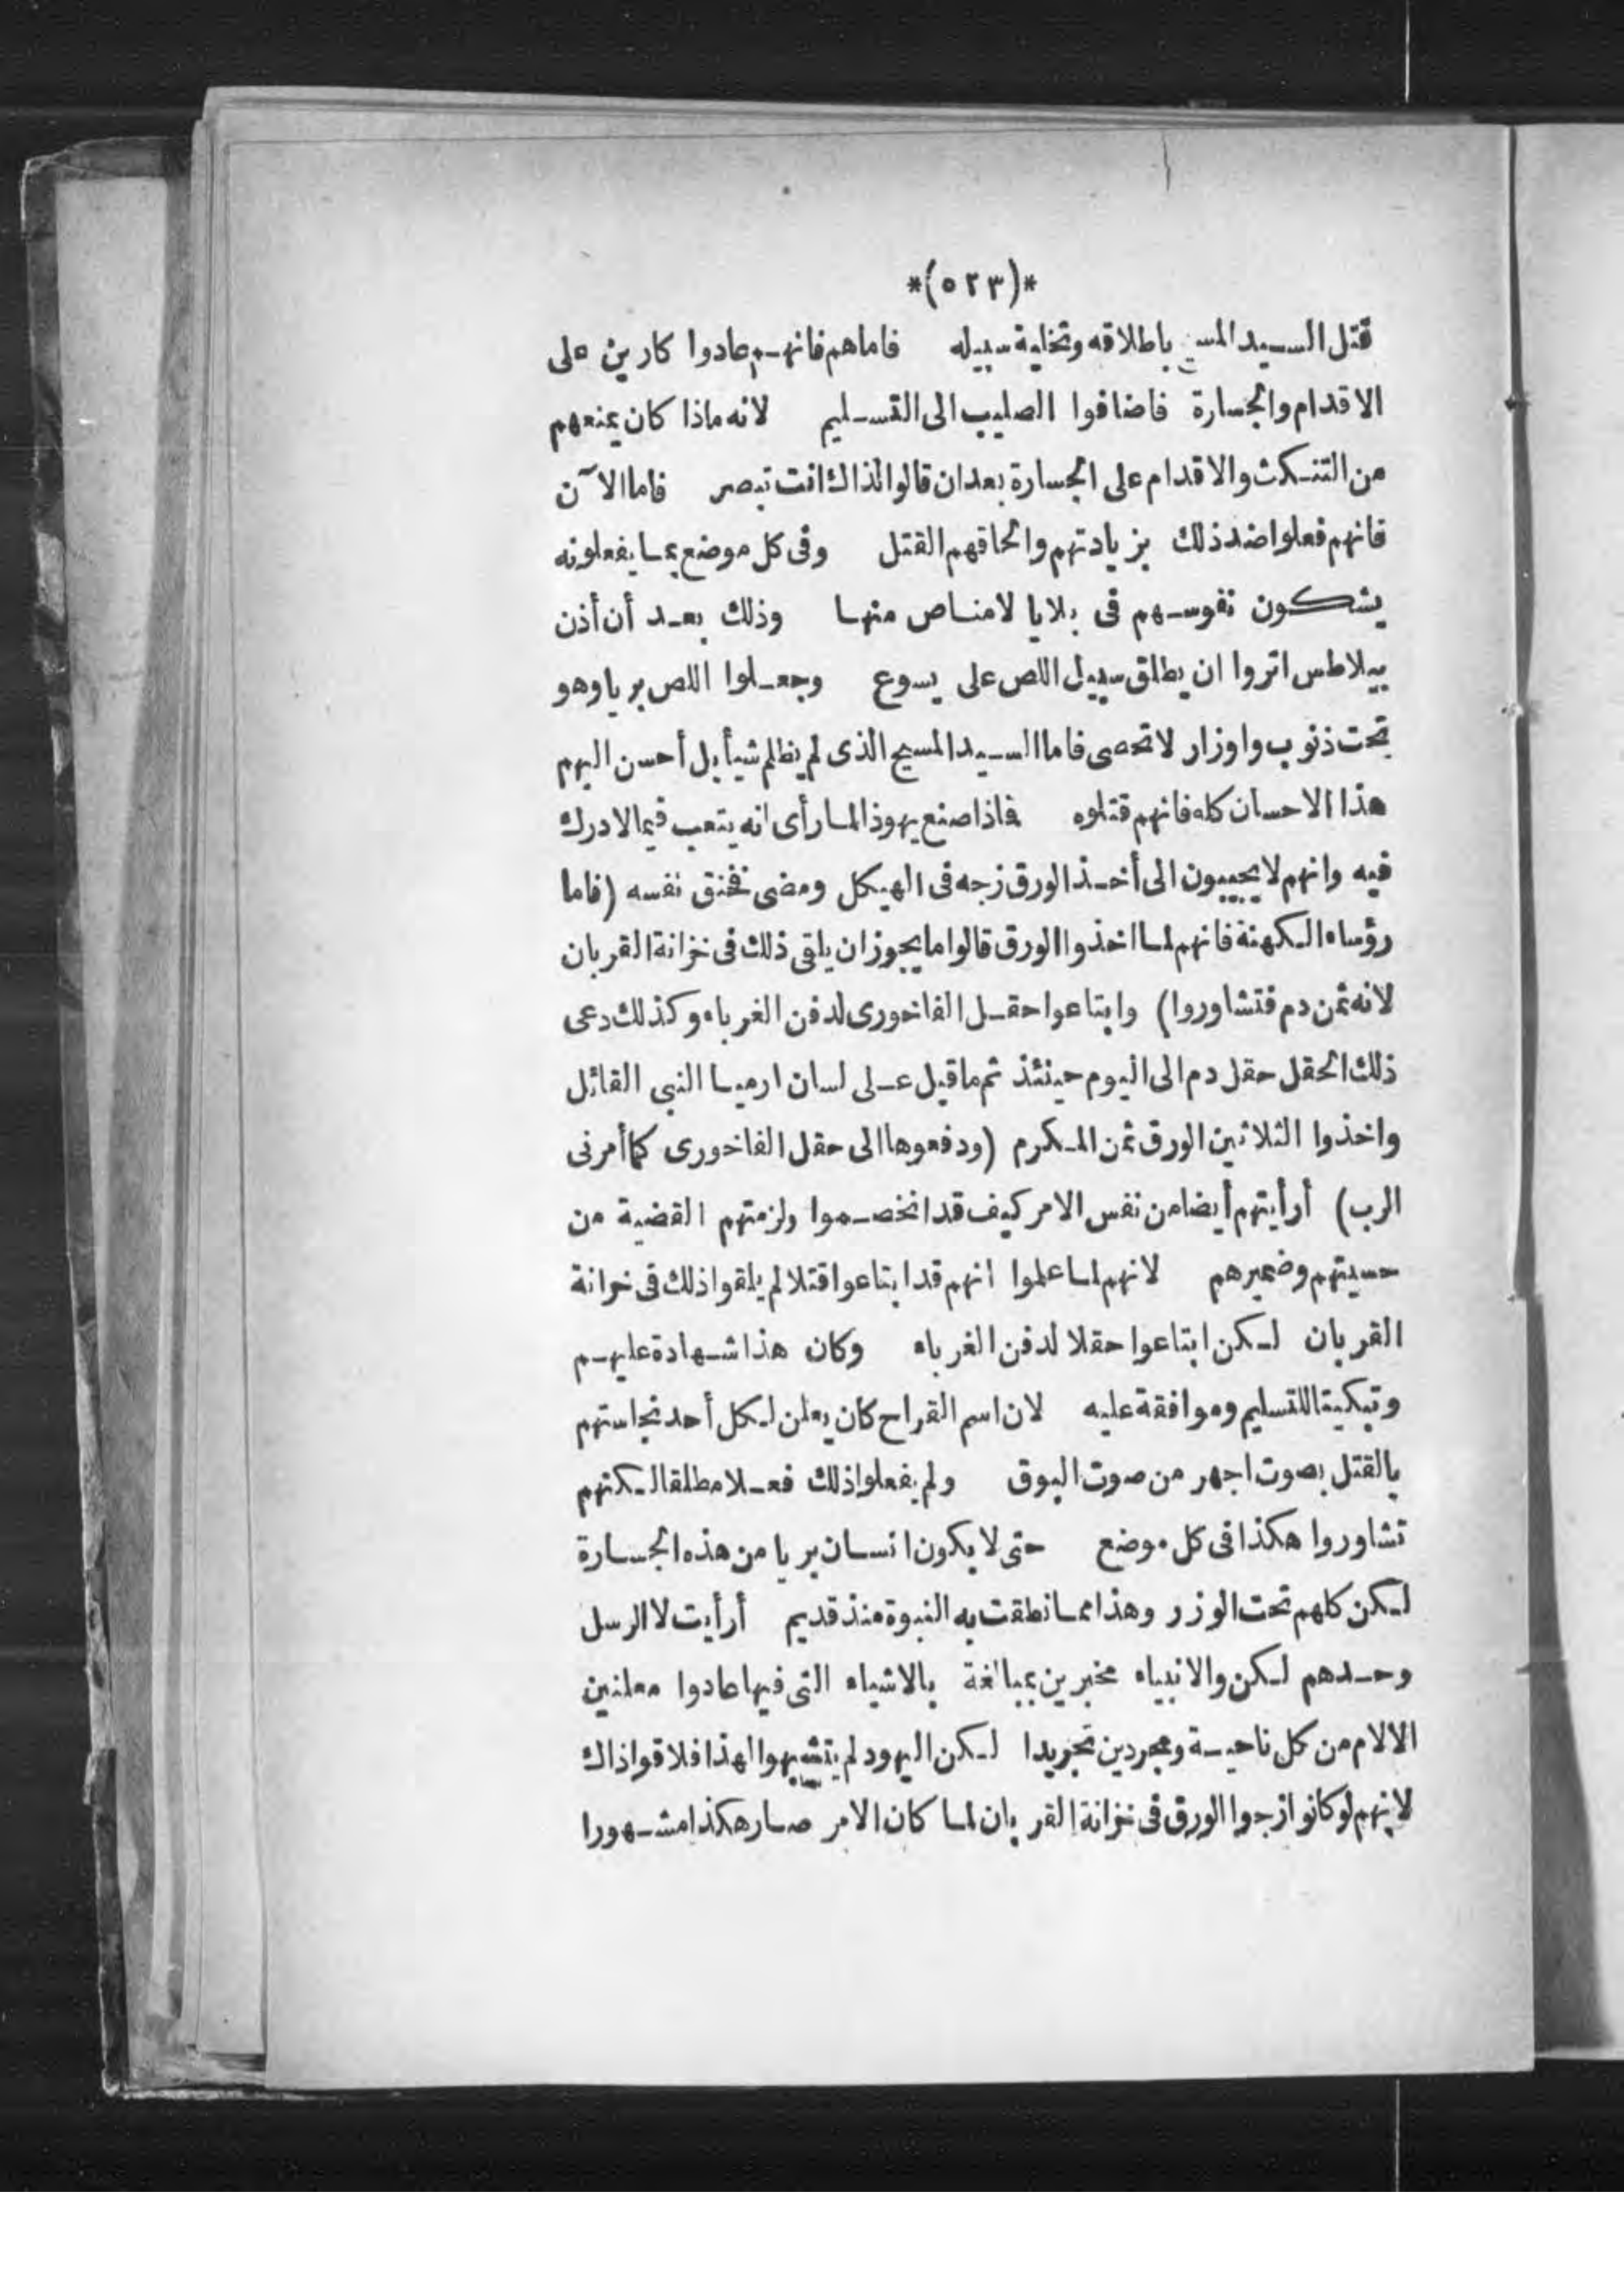 *(٥٢٣)*
قتل السيد المسيح باطلاقه وتخلية سبيله فاما هم فانهم عادوا كارين على
الاقدام والجسارة فاضافوا الصليب الى التسليم لانه ماذا كان يمنعهم
من التنكث والاقدام على الجسارة بعد ان قالوا لذاك انت تبصر فاما الآن
فانهم فعلوا ضد ذلك بزيادتهم والحاقهم القتل وفى كل موضع بما يفعلونه
يشكون نفوسهم فى بلايا لا مناص منها وذلك بعد أن أذن
بيلاطس اثروا ان يطلق سبيل اللص على يسوع وجعلوا اللص بريا وهو
تحت ذنوب واوزار لا تحصى فاما السيد المسيح الذى لم يظلم شيأ بل أحسن اليهم
هذا الاحسان كله فانهم قتلوه فماذا صنع يهوذا لما رأى انه يتعب فيما لا درك
فيه وانهم لا يجيبون الى أخذ الورق زجه فى الهيكل ومضى فخنق نفسه (فاما
رؤساء الكهنة فانهم لما اخذوا الورق قالوا ما يجوز ان يلقى ذلك فى خزانة القربان
لانه ثمن دم فتشاوروا) وابتاعوا حقل الفاخورى لدفن الغرباء وكذلك دعى
ذلك الحقل حقل دم الى اليوم حينئذ تم ما قيل على لسان ارميا النبى القائل
واخذوا الثلاثين الورق ثمن المكرم (ودفعوها الى حقل الفاخورى كما أمرنى
الرب) أرأيتهم أيضا من نفس الامر كيف قد انخصموا ولزمتهم القضية من
حسيتهم وضميرهم لانهم لما علموا انهم قد ابتاعوا قتلا لم يلقوا ذلك فى خزانة
القربان لكن ابتاعوا حقلا لدفن الغرباء وكان هذا شهادة عليهم
وتبكيتا للتسليم وموافقة عليه لان اسم القراح كان يعلن لكل أحد نجاستهم
بالقتل بصوت اجهر من صوت البوق ولم يفعلوا ذلك فعلا مطلقا لكنهم
تشاوروا هكذا فى كل موضع حتى لا يكون انسان بريا من هذه الجسارة
لكن كلهم تحت الوزر وهذا مما نطقت به النبوة منذ قديم أرأيت لا الرسل
وحدهم لكن والانبياء مخبرين بمبالغة بالاشياء التى فيها عادوا معلنين
الالام من كل ناحية ومجردين تجريدا لكن اليهود لم يتشبهوا لهذا فلاقوا ذاك
لانهم لو كانوا زجوا الورق فى خزانة القربان لما كان الامر صار هكذا مشهورا